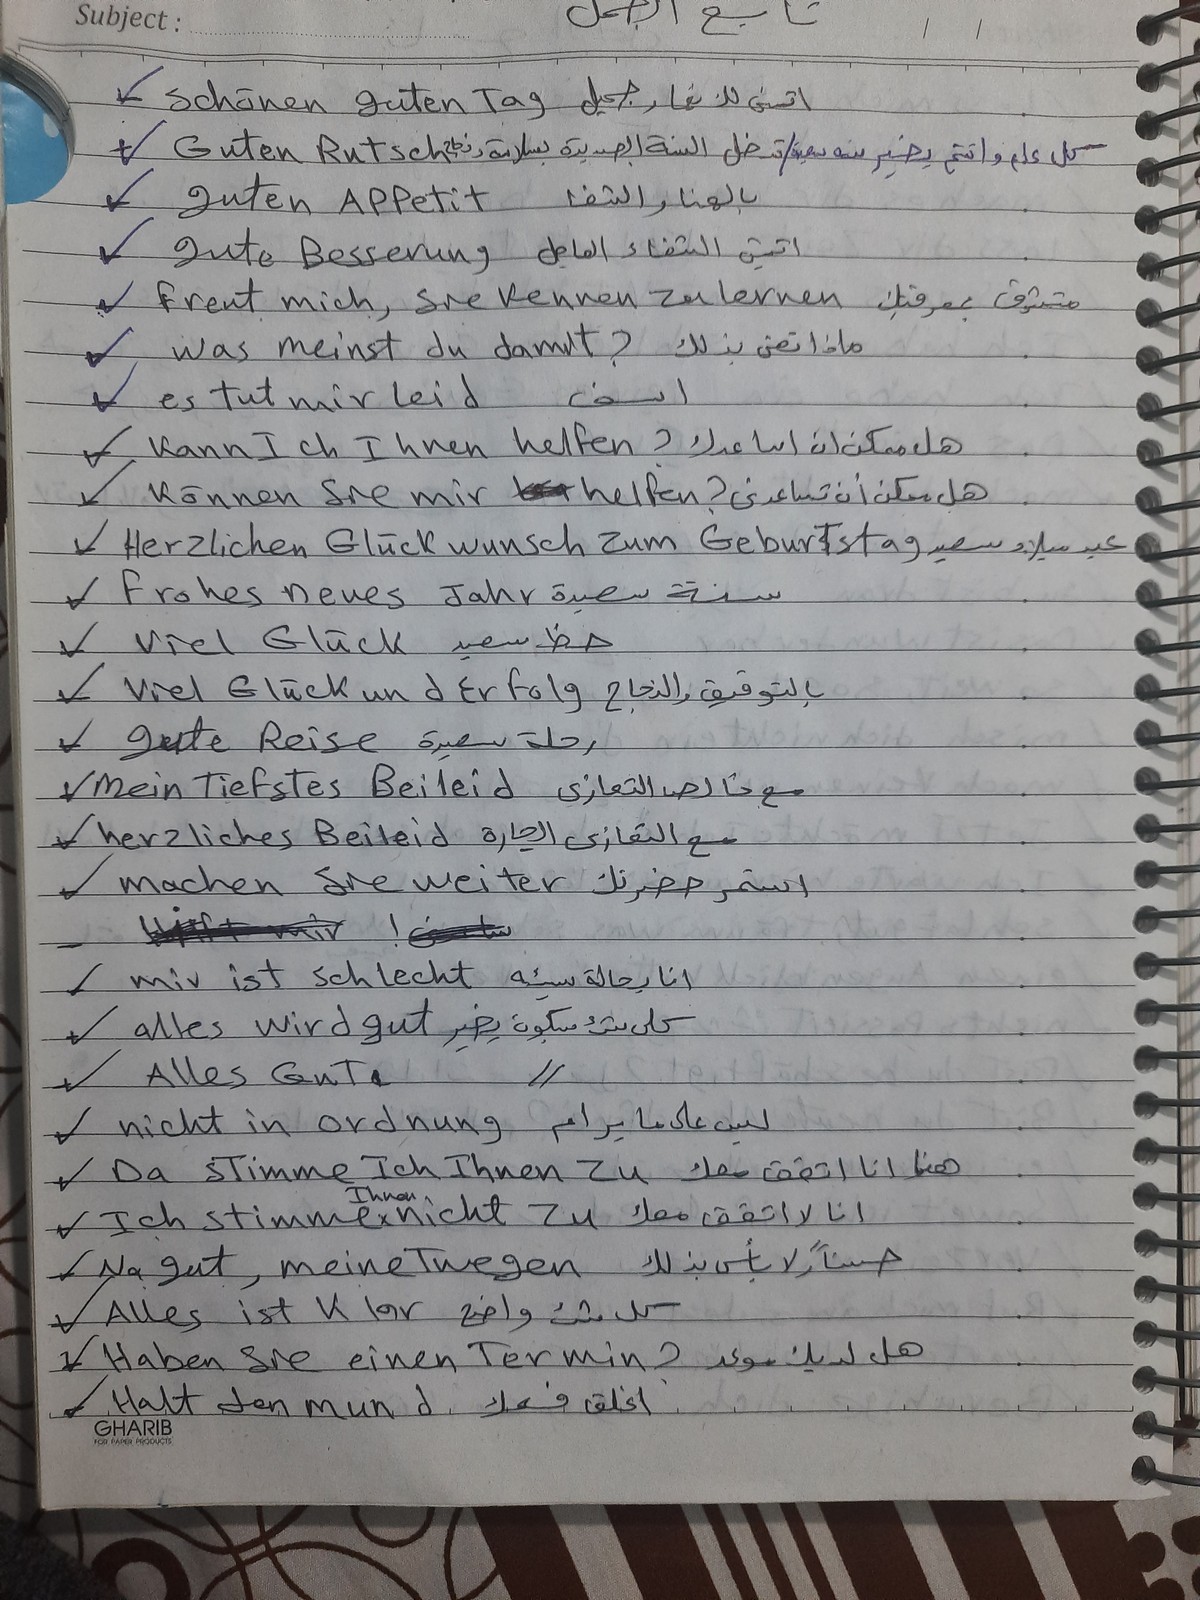 Subject :
تابع الجمل / /
Schönen guten Tag اتمنى لك نهار جميل
Guten Rutsch كل عام وانتم بخير سنه سعيدة/تدخل السنة الجديدة بسلامة ونجاح
guten APPetit بالهنا والشفا
gute Besserung اتمنى الشفاء العاجل
freut mich, Sie kennen zu lernen متشرف بمعرفتك
Was meinst du damit? ماذا تعني بذلك
es tut mir leid اسف
Kann Ich Ihnen helfen? هل ممكن ان اساعدك
Können Sie mir helfen? هل ممكن أن تساعدني
Herzlichen Glückwunsch zum Geburtstag عيد ميلاد سعيد
Frohes neues Jahr سنة سعيدة
Viel Glück حظ سعيد
Viel Glück und Erfolg بالتوفيق والنجاح
gute Reise رحلة سعيدة
Mein Tiefstes Beileid مع خالص التعازى
herzliches Beileid مع التعازى الحارة
machen Sie weiter استمر حضرتك
!
mir ist schlecht انا بحالة سيئه
alles wird gut كل شئ سيكون بخير
Alles Gute //
nicht in ordnung ليس على ما يرام
Da stimme Ich Ihnen zu هنا انا اتفق معك
Ich stimme Ihnen nicht zu انا لا اتفق معك
Na gut, meinetwegen حسناً لا بأس بذلك
Alles ist Klar كل شئ واضح
Haben Sie einen Termin? هل لديك موعد
Halt den mund اغلق فمك
GHARIB
FOR PAPER PRODUCTS